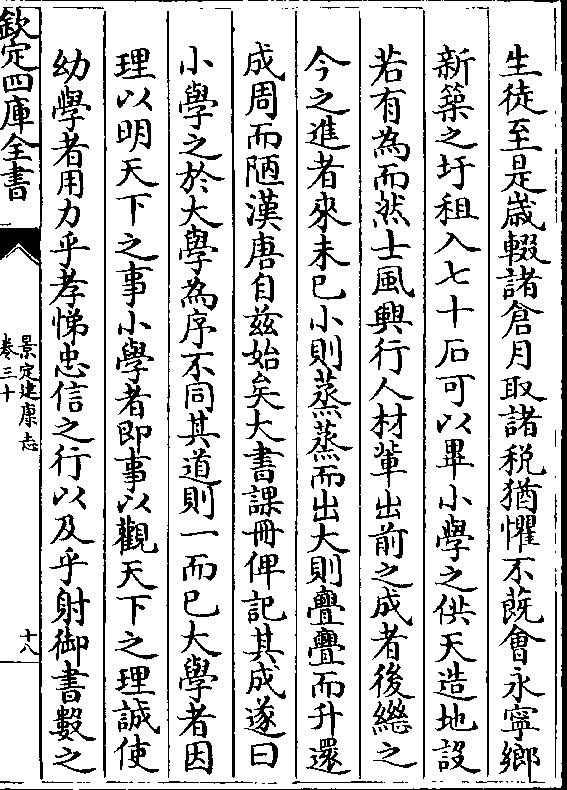 生徒至是歳輟諸倉月取諸税猶懼不旣會永寧鄉
新築之圩租入七十石可以畢小學之供天造地設
若有為而然士風興行人材輩出前之成者後繼之
今之進者來未已小則蒸蒸而出大則亹亹而升還
成周而陋漢唐自兹始矣大書課冊俾記其成遂曰
小學之於大學為序不同其道則一而已大學者因
理以明天下之事小學者即事以觀天下之理誠使
幼學者用力乎孝悌忠信之行以及乎射御書數之
欽定四庫全書
景定建康志
卷三十
十八